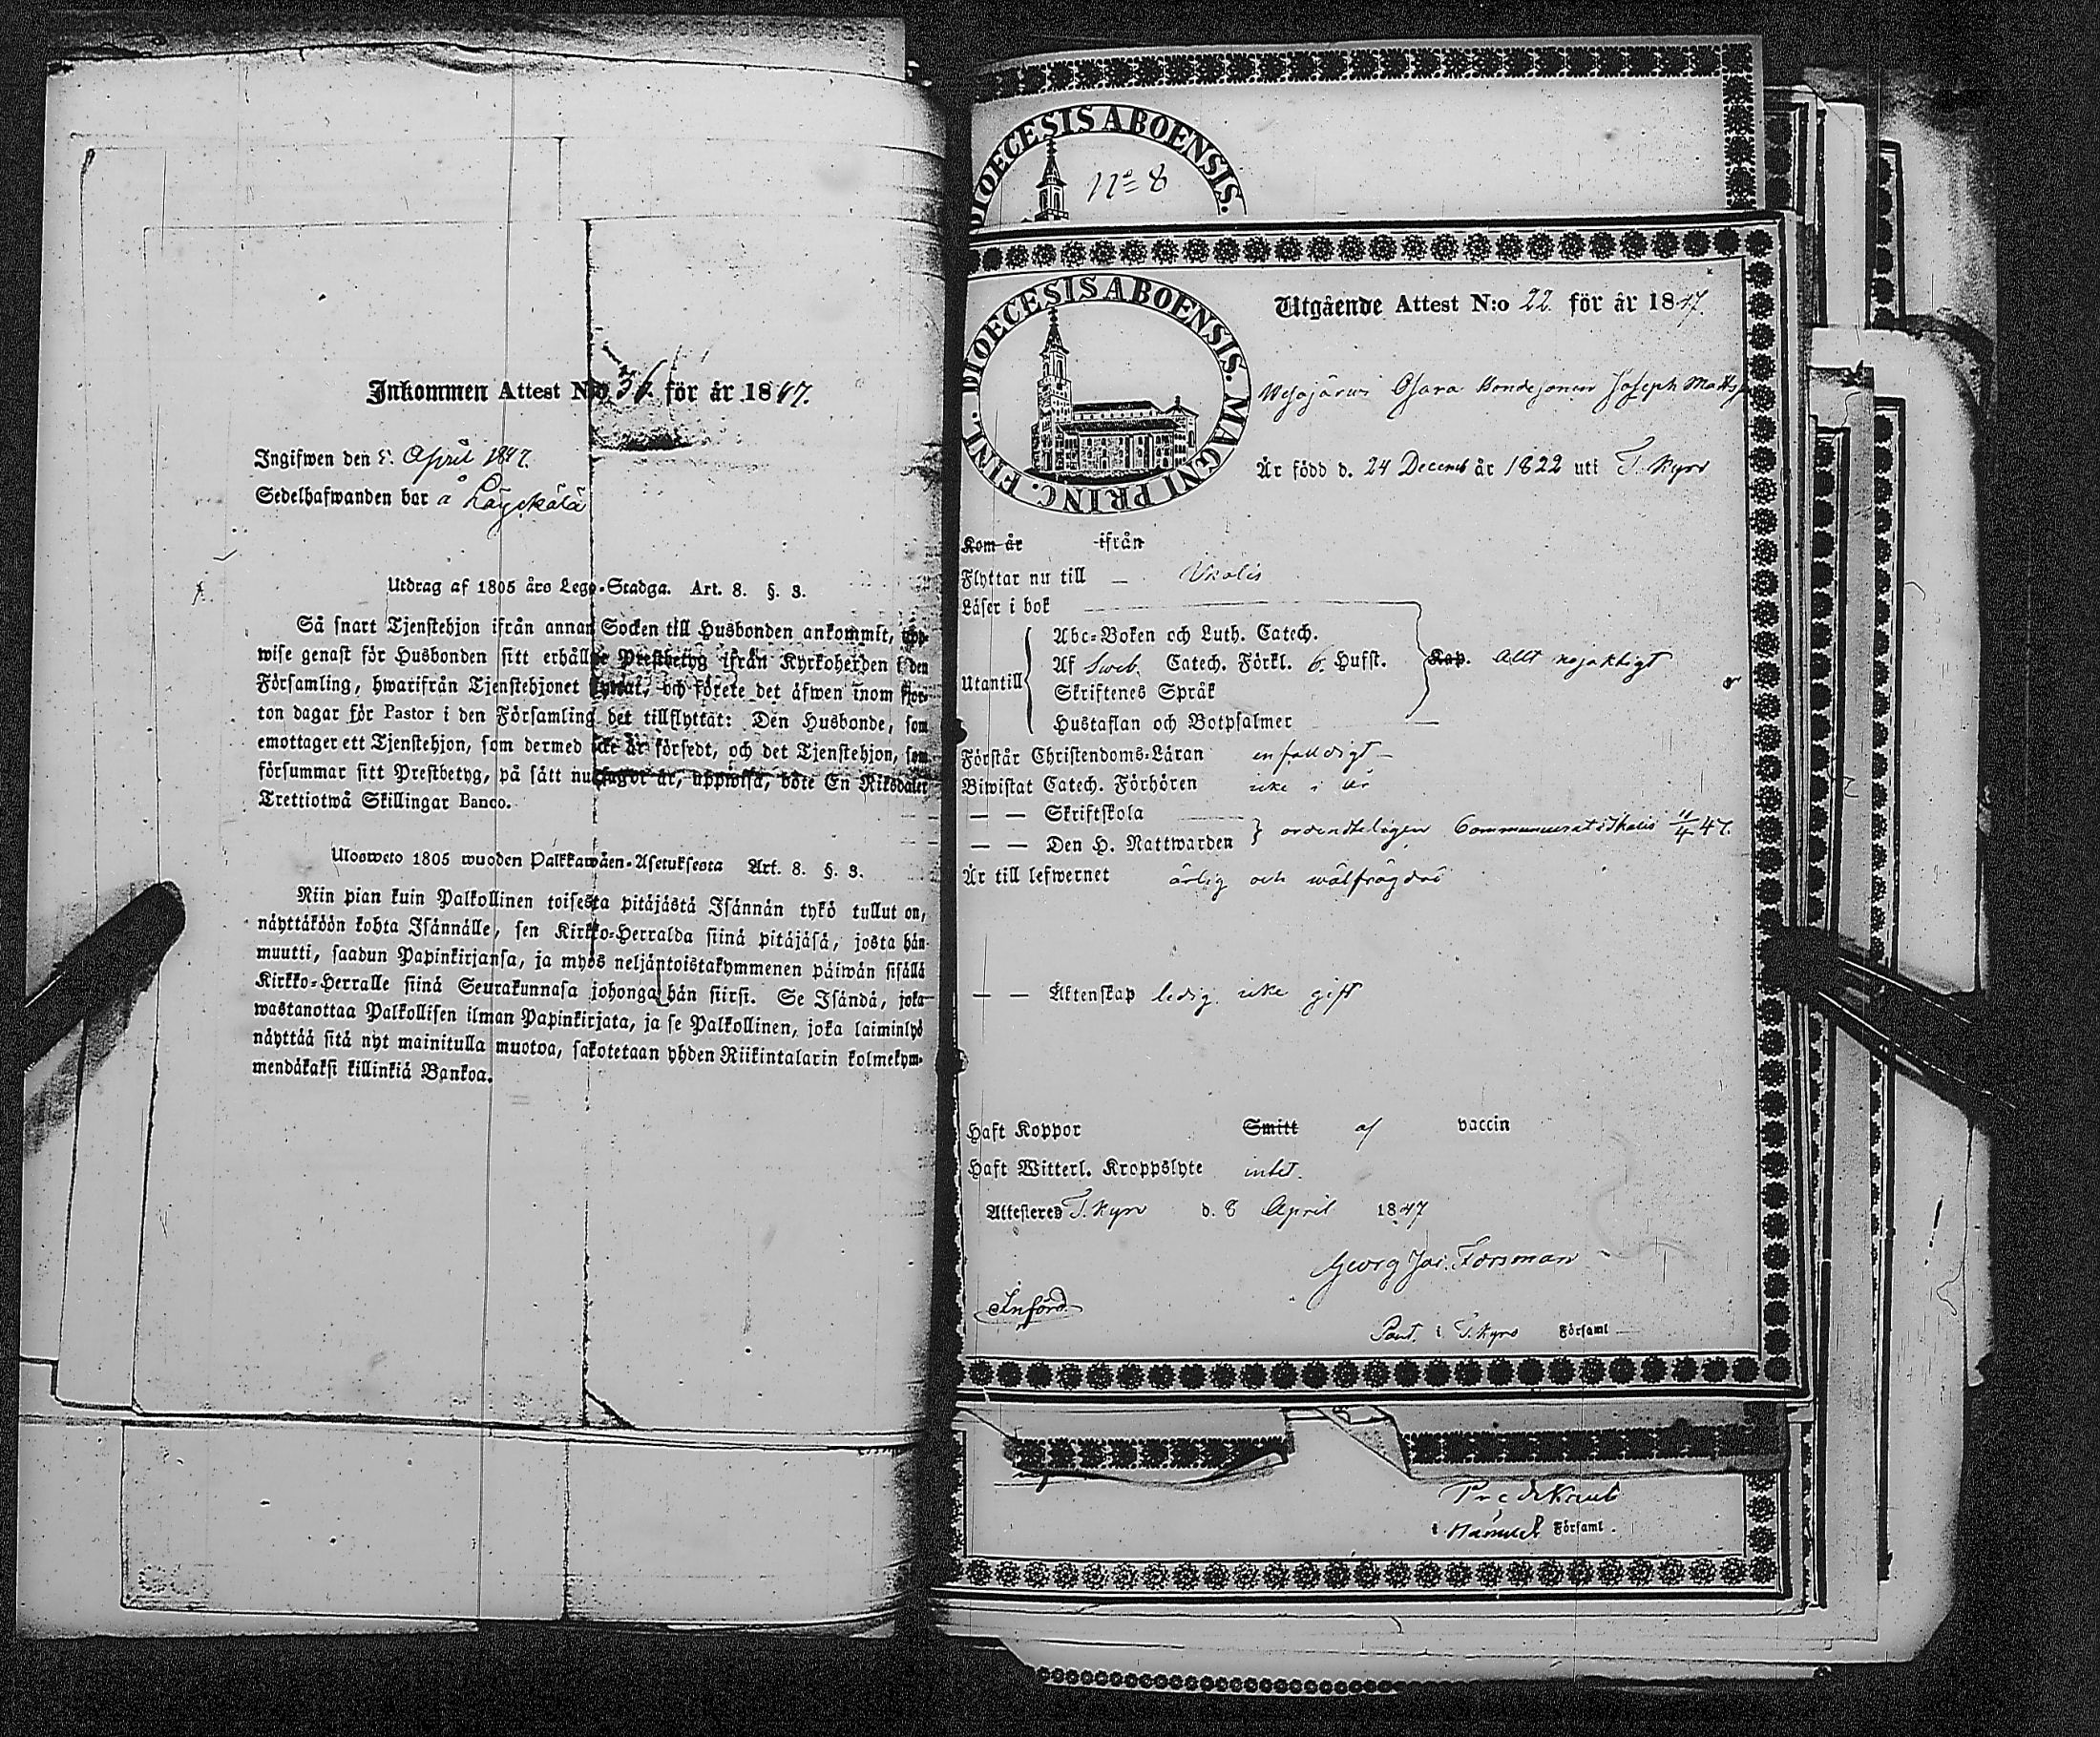 Inkommen Attest N:o 36. för år 1847.
Ingifwen den April 1847.
Sedelhafwanden bor å
Utdrag af 1805 års Lego-Stadga. Art. 8. §. 3.
Så snart Tjenstehjon ifrån annan Socken till Husbonden ankommit, upp-
wise genast för Husbonden sitt erhållne Prestbetyg ifrån Kyrkoherden i den
Församling, hwarifrån Tjenstehjonet flyttat, och förete det äfwen inom fjor-
ton dagar för Pastor i den Församling det tillflyttat: Den Husbonde, som
emottager ett Tjenstehjon, som dermed icke är försedt, och det Tjenstehjon, som
försummar sitt Prestbetyg, på sätt nu sagdt är, uppwisa, böte En Riksdaler
Trettiotwå Skillingar Banco.
Ulosweto 1805 wuoden Palkkawäen-Asetuksesta Art. 8. §. 3.
Niin pian kuin Palkollinen toisesta pitäjästä Isännän tykö tullut on,
näyttäköön kohta Isännälle, sen Kirkko-Herralda siinä pitäjäsä, josta hän
muutti, saadun Papinkirjansa, ja myös neljäntoistakymmenen päiwän sisällä
Kirkko-Herralle siinä Seurakunnasa johonga hän siirsi. Se Isändä, joka
wastanottaa Palkollisen ilman Papinkirjata, ja se Palkollinen, joka laiminlyö
näyttää sitä nyt mainitulla muotoa, sakotetaan yhden Riikintalarin kolmekym-
mendäkaksi killinkiä Bankoa.
DIOECESIS ABOENSIS.
N:o 8
DIOECESIS ABOENSIS. MAGNI PRINC. FINL.
Utgående Attest N:o 22. för år 1847.
Wesajärwi Ojara Bondesonen Joseph Matts
Är född d. 24 Decemb år 1822 uti T. Kyro
Kom år ifrån
Flyttar nu till – Ikalis
Läser i bok
Utantill
Abc-Boken och Luth. Catech.
Af Sweb. Catech. Förkl. 6. Hufst. Kap. Allt nöjaktigt
Skriftenes Språk
Hustaflan och Botpsalmer
Förstår Christendoms-Läran enfaldigt
Biwistat Catech. Förhören icke i år
— — Skriftskola
— — Den H. Nattwarden ordenteligen 47.
Är till lefwernet ärlig och wälfrägdad
— — Äktenskap ledig icke gift
Haft Koppor Smitt af vaccin
Haft Witterl. Kroppslyte intet.
Attesteras T. Kyro d. 8 April 1847
Georg Jac. Forsman
Införd.
Past. i T. Kyro Församl
Predikant
i Församl.